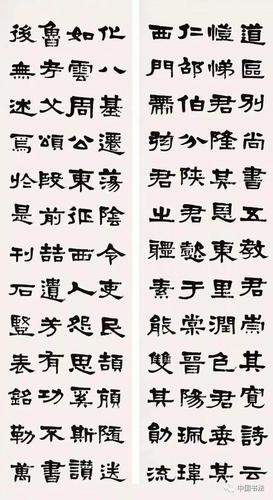 道區別尚書五教君崇其寬詩云
愷悌君隆其恩東里潤色君垂其
仁邵伯分陝君懿于棠晉陽珮瑋
西門帶弦君之體素能雙其勛流
化八基遷蕩陰令吏民頡頏隨送
如雲周公東征西人怨思奚斯讚
魯考父頌殷前喆遺芳有功不書
後無述焉於是刊石豎表銘勒萬
中国书法